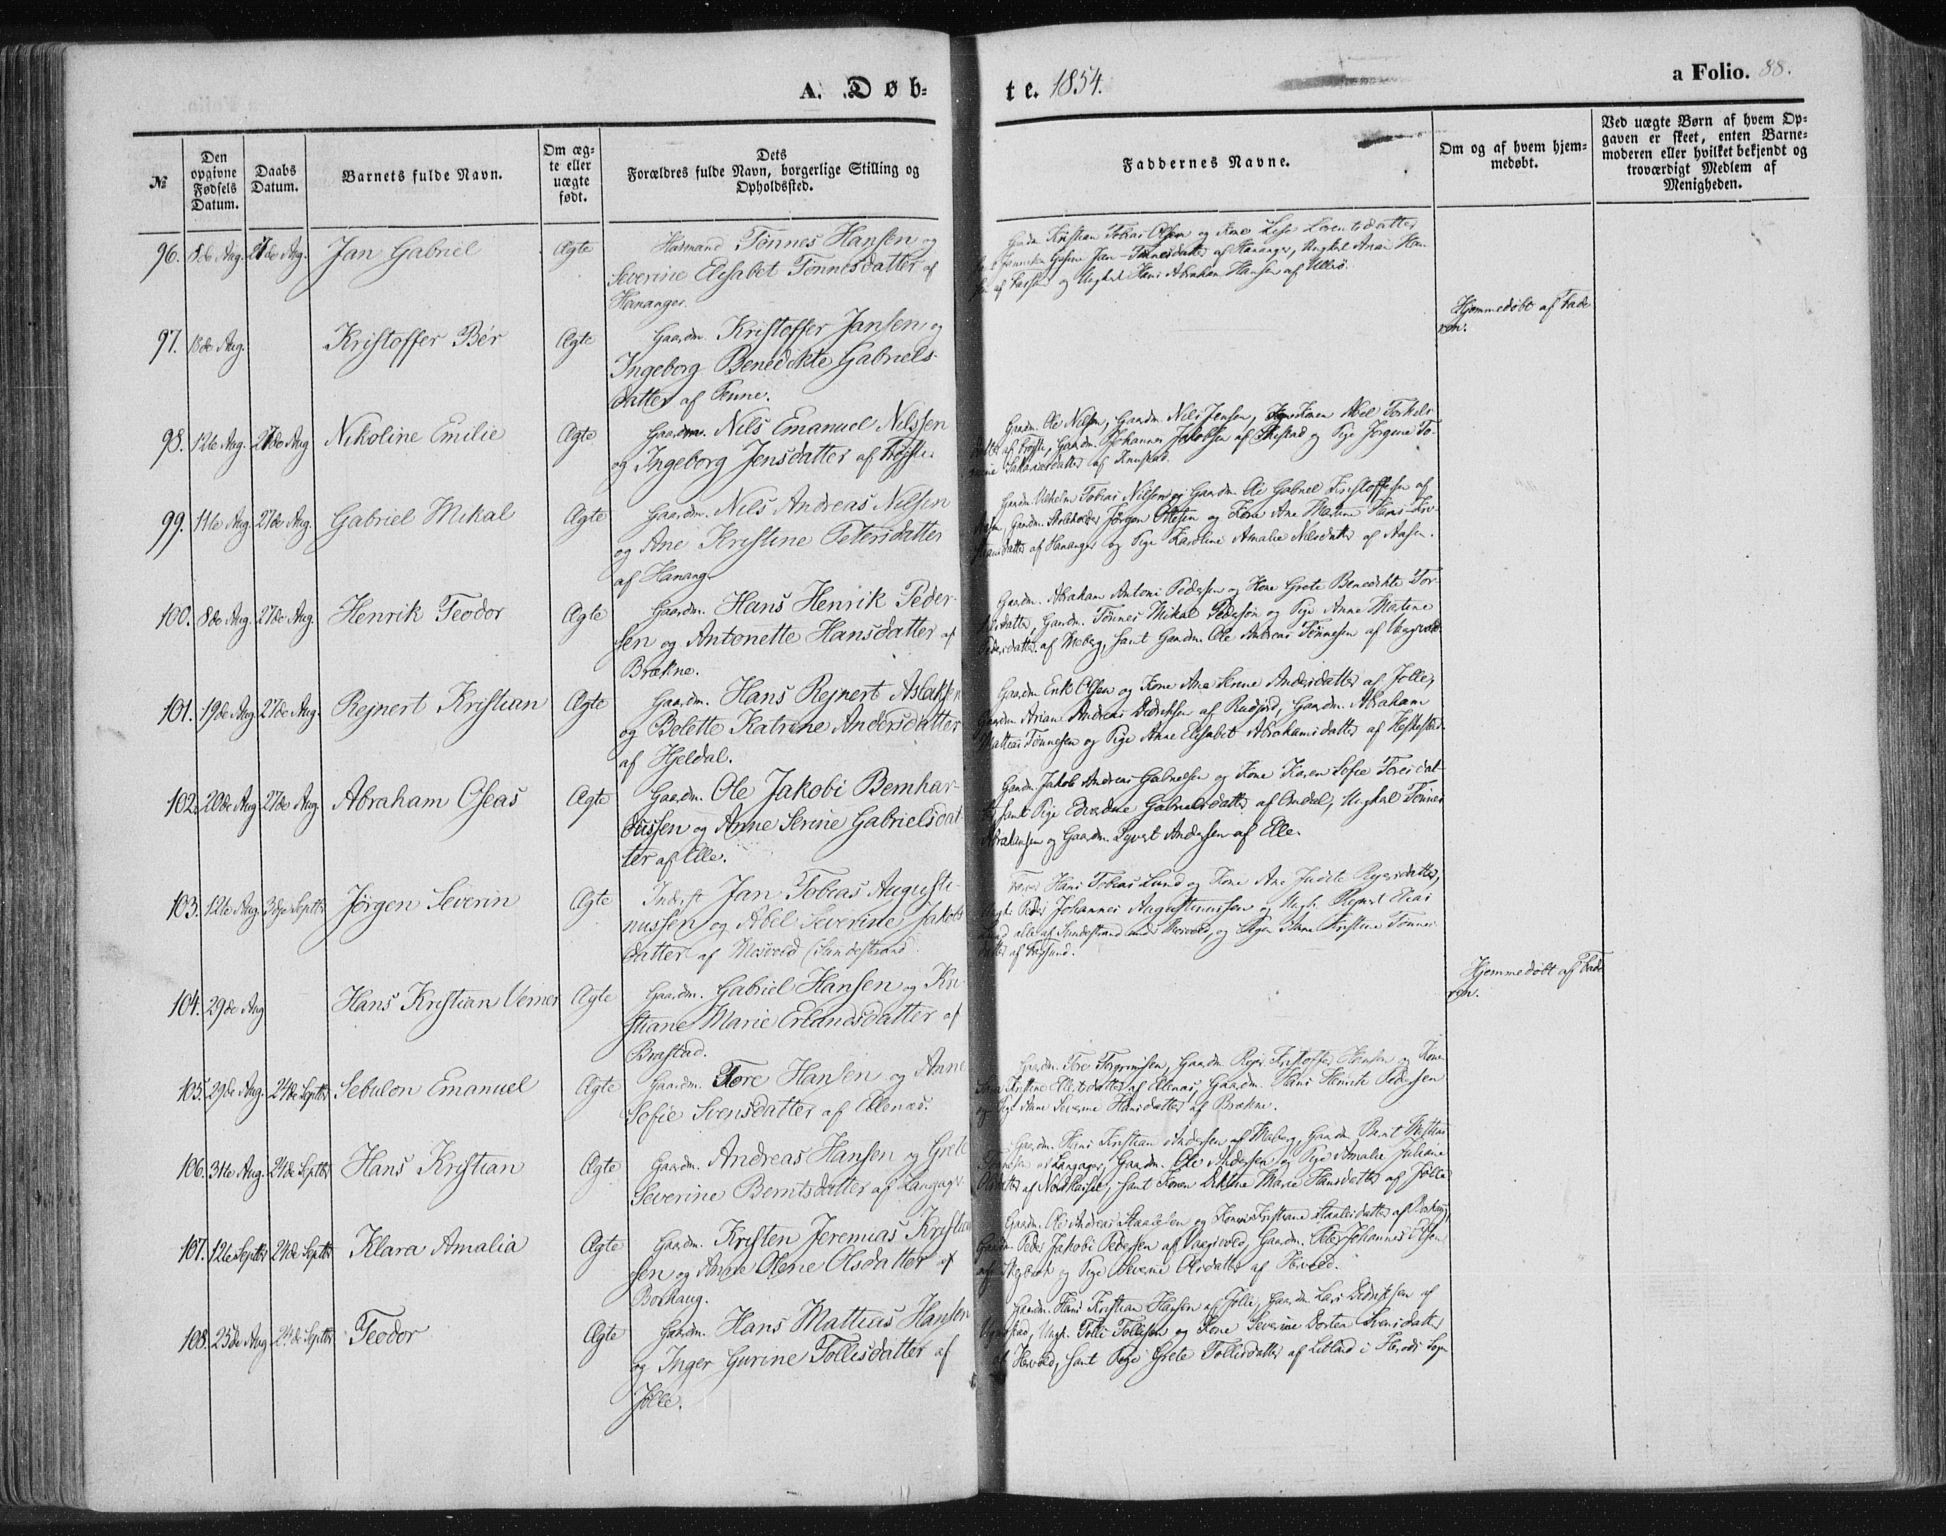 A. Døb-
te. 1854.
a Folio. 88.
№
Den opgivne Fødsels Datum.
Daabs Datum.
Barnets fulde Navn.
Om ægte eller uægte født.
Dets Forældres fulde Navn, borgerlige Stilling og Opholdssted.
Faddernes Navne.
Om og af hvem hjemmedøbt.
Ved uægte Børn af hvem Opgaven er skeet, enten Barnemoderen eller hvilket bekjendt og troværdigt Medlem af Menigheden.
96. 8de Aug. 27de Aug. Jan Gabriel Ægte Husmand Tønnes Hansen og
Severine Elisabet Tønnesdatter af
Hananger.
Gaardm. Kristian Tobias Olsen og Kone Lise Lorentsdatter
Jan-Tønnesdatter af Hananger, Ungkal Arian Han-
sen og Ungkal Hans Abraham Hansen af Ullerø.
97. 18de Aug. Kristoffer Bér Ægte Gaardm. Kristoffer Jansen og
Ingeborg Benedikte Gabriels-
datter af Penne.
Hjemmedøbt af Fade
ren.
98. 12te Aug. 27de Aug Nikoline Emilie Ægte Gaardm. Nils Emanuel Nilssen
og Ingeborg Jensdatter af
Gaardm. Ole Nilsen, Gaardm. Nils Jensen, Konen Abel Torkels-
datter af Gaardm. Johannes Jakobsen af og Pige Jørgine To-
Sakariasdatter af
99. 11te Aug. 27de Aug. Gabriel Mikal Ægte Gaardm. Nils Andreas Nilsen
og Ane Kristine Petersdatter
af Hanang.
Gaardm. Vilhelm Tobias Nilsen og Gaardm. Ole Gabriel Kristoffersen af
Aasen, Gaardm. Jørgen Olsen og Kone Ane Martine Hans-Kri-
stiansdatter af Hananger og Pige Karoline Amalie Nilsdatter af Aasen.
100. 8de Aug. 27de Aug. Henrik Teodor Ægte Gaardm. Hans Henrik Peder-
sen og Antonette Hansdatter af
Brækne.
Gaardm. Abraham Antoni Pedersen og Kone Grete Benedikte Tor-
datter, Gaardm. Tønnes Mikal Pedersen og Pige Anne Martine
Pedersdatter af Meberg, samt Gaardm. Ole Andreas Tønnesen af
101. 19de Aug. 27de Aug. Rejnert Kristian Ægte Gaardm. Hans Rejnert Aslaksen
og Belette Katrine Andersdatter
af Hjeldal.
Gaardm. Erik Olsen og Kone Ane Andersdatter af Jølle,
Gaardm. Arian Andreas Didriksen af Rudjord, Gaardm. Abraham
Mattias Tønnesen og Pige Anne Elisabet Abrahamsdatter af
102. 20de Aug 27de Aug Abraham Oseas Ægte Gaardm. Ole Jakobi Bernhar-
dussen og Anne Serine Gabrielsdat-
ter af Elle.
Gaardm. Jakob Andreas Gabrielsen og Kone Karen Sofie Toresdat-
ter samt Pige Gabrielsdatter af Ungkal Tønnes
Abrahamsen og Gaardm. Andersen af Elle.
103. 12te Aug. 3die Septbr Jørgen Severin Ægte Inderst Jan Tobias Augusti-
nussen og Abel Severine Jakobs
datter af Mosvold (Sundestrand.
Hans Tobias Lund og Kone Ane Rejersdatter,
Ungk. Peder Johannes Augustinussen og Ungk. Rejnert Elias
Lund alle af Sundestrand under Mosvold, og Pigen Anne Kristine Tønnes
datter af Farsund.
104. 29de Aug Hans Kristian Verner Ægte Gaardm. Gabriel Hansen og Kri-
stiane Marie Erlandsdatter af
Brastad.
Hjemmedøbt af Fade
ren.
105. 29de Aug. 24de Septbr Sebulon Emanuel Ægte Gaardm. Tore Hansen og Anne
Sofie Svensdatter af Ellenæs.
Gaardm. Tore Torgrimsen, Gaardm. Kristoffer Hansen og Kone
Kristine datter af Ellenæs, Gaardm. Hans Henrik Pedersen
og Pige Anne Severine Hansdatter af Brækne.
106. 31te Aug. 24de Septbr Hans Kristian Ægte Gaardm. Andreas Hansen og Grete
Severine Berntsdatter af Langager
Gaardm. Hans Kristian Andersen af Meberg, Gaardm. Bernt Mattias
Tønnesen af Langager, Gaardm. Ole Andersen og Pige Amalie Juliane
samt Konen Marie Hansdatter af Jølle
107. 12te Septbr 24de Septbr Klara Amalia Ægte Gaardm. Kristen Jeremias Kristian
sen og Anne Olene Olsdatter af
Borhaug.
Gaardm. Ole Andreas Staalesen og Konen Kristiane Staalesdatter af Borhaug,
Gaardm. Peder Jakobi Pedersen af Gaardm. Peder Johannes Olsen
og Pige Severine Olsdatter af
108. 25de Aug 24de Septbr Teodor Ægte Gaardm. Hans Mattias Hansen
og Inger Gurine Tollisdatter af
Jølle.
Gaardm. Hans Kristian Hansen af Jølle, Gaardm. Lars Didriksen af
Ungk. Tolli Tollisen og Kone Severine Dorten Svensdatter
samt Pige Grete Tollisdatter af Litland i Herads Sogn